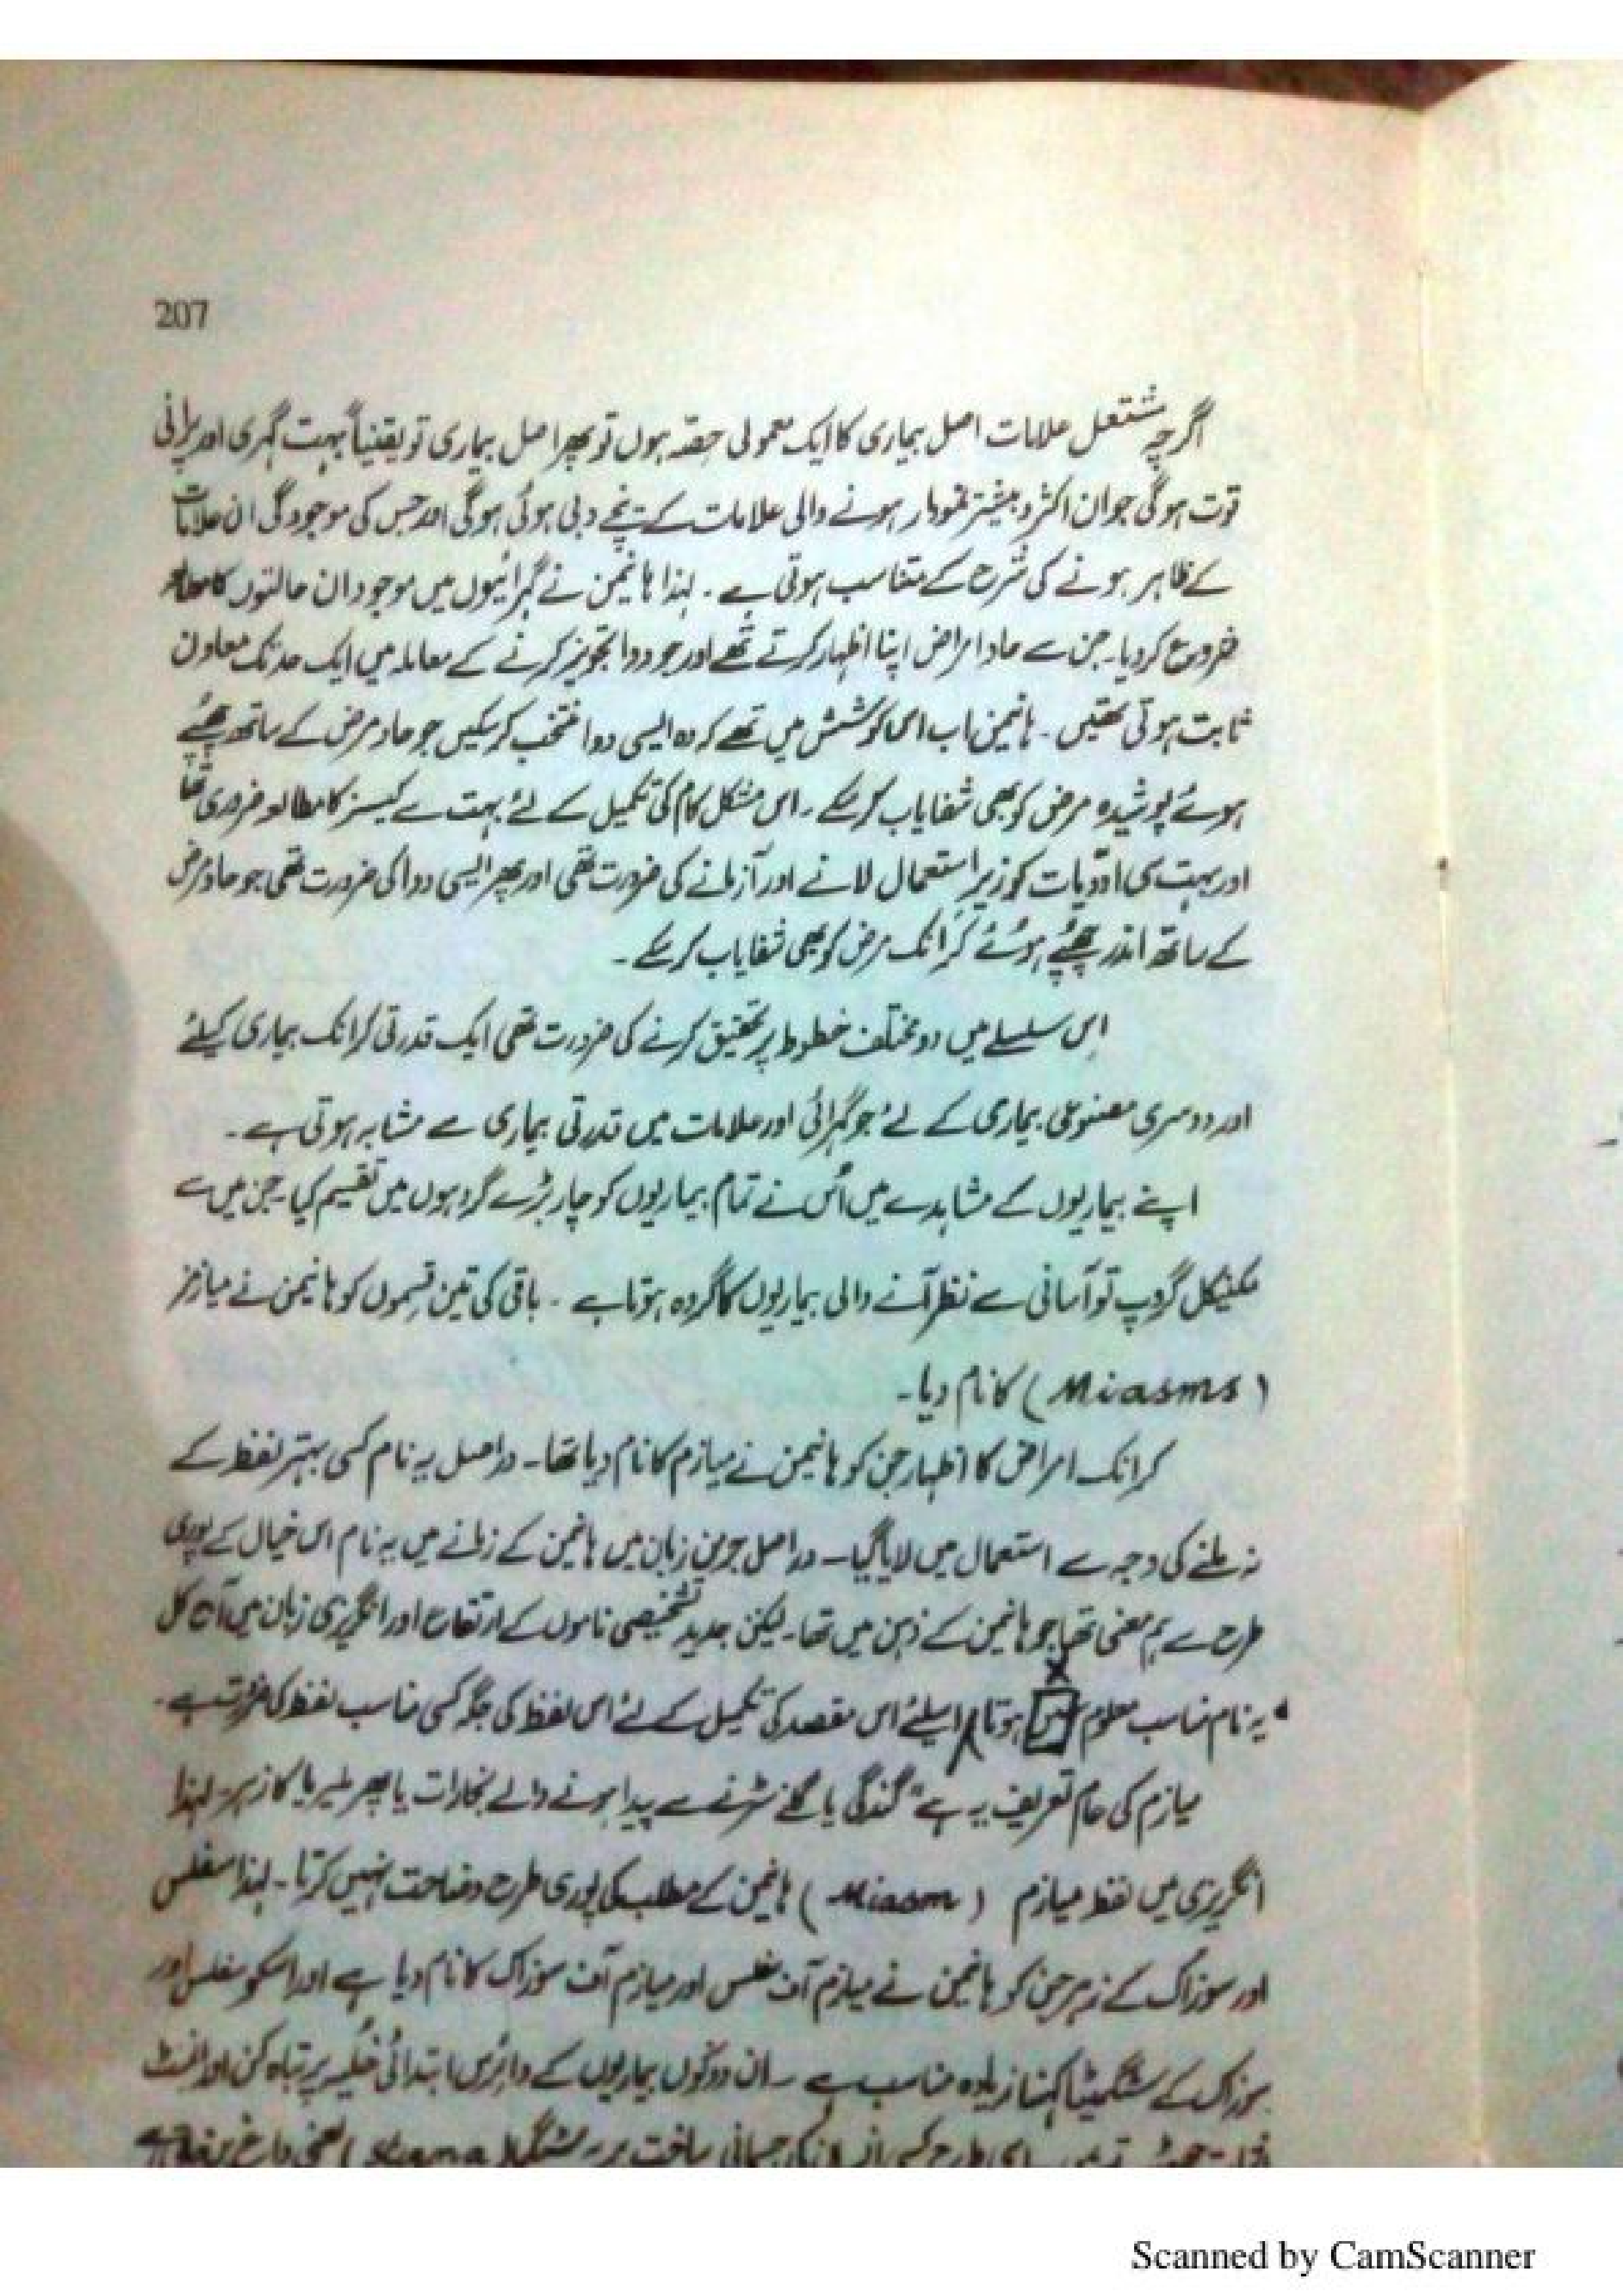 207
اگرچہ مشتعل علامات اصل بیماری کا ایک معمولی حصّہ ہوں تو پھر اصل بیماری تو یقیناً بہت گہری اور پرانی
قوت ہوگی جو ان اکثر و بیشتر نمودار ہونے والی علامات کے نیچے دبی ہوئی ہوگی اور جس کی موجودگی ان علامات
کے ظاہر ہونے کی شرح کے متناسب ہوتی ہے ۔ لہذا ہانیمن نے گہرائیوں میں موجود ان حالتوں کا مطالعہ
شروع کر دیا ۔ جن سے حاد امراض اپنا اظہار کرتے تھے اور جو دوا تجویز کرنے کے معاملہ میں ایک حد تک معاون
ثابت ہوتی تھیں ۔ ہانیمن اب اس کوشش میں تھے کہ وہ ایسی دوا منتخب کر سکیں جو حاد مرض کے ساتھ چھپے
ہوئے پوشیدہ مرض کو بھی شفایاب کر سکے ۔ اس مشکل کام کی تکمیل کے لئے بہت سے کیسز کا مطالعہ ضروری تھا
اور بہت سی ادویات کو زیرِ استعمال لانے اور آزمانے کی ضرورت تھی اور پھر ایسی دوا کی ضرورت تھی جو حاد مرض
کے ساتھ اندر چھپے ہوئے کرانک مرض کو بھی شفایاب کر سکے ۔
اِس سلسلے میں دو مختلف خطوط پر تحقیق کرنے کی ضرورت تھی ایک قدرتی کرانک بیماری کیلئے
اور دوسری مصنوعی بیماری کے لئے جو گہرائی اور علامات میں قدرتی بیماری سے مشابہ ہوتی ہے ۔
اپنے بیماریوں کے مشاہدے میں اُس نے تمام بیماریوں کو چار بڑے گروہوں میں تقسیم کیا ۔ جن میں سے
مکینیکل گروپ تو آسانی سے نظر آنے والی بیماریوں کا گروہ ہوتا ہے ۔ باقی کی تین قسموں کو ہانیمن نے میازمز
( Miasms ) کا نام دیا ۔
کرانک امراض کا اظہار جن کو ہانیمن نے میازم کا نام دیا تھا ۔ دراصل یہ نام کسی بہتر لفظ کے
نہ ملنے کی وجہ سے استعمال میں لایا گیا ۔ دراصل جرمن زبان میں ہانیمن کے زمانے میں یہ نام اس خیال کے پوری
طرح سے ہم معنی تھا جو ہانیمن کے ذہن میں تھا ۔ لیکن جدید تشخیصی ناموں کے ارتقاء اور انگریزی زبان میں آج کل
یہ نام مناسب معلوم ہوتا اسلئے اس مقصد کی تکمیل کے لئے اس لفظ کی جگہ کسی مناسب لفظ کی ضرورت ہے ۔
میازم کی عام تعریف یہ ہے " گندگی یا گلنے سڑنے سے پیدا ہونے والے بخارات یا پھر ملیریا کا زہر ۔ لہذا
انگریزی میں لفظ میازم ( Miasm ) ہانیمن کے مطلب کی پوری طرح وضاحت نہیں کرتا ۔ لہذا سفلس
اور سوزاک کے زہر جن کو ہانیمن نے میازم آف سفلس اور میازم آف سوزاک کا نام دیا ہے اور اسکو سفلس اور
سوزاک کے سٹگمیٹا کہنا زیادہ مناسب ہے ۔ ان دونوں بیماریوں کے وائرس ابتدائی خلیہ پر تباہ کن اور انمٹ